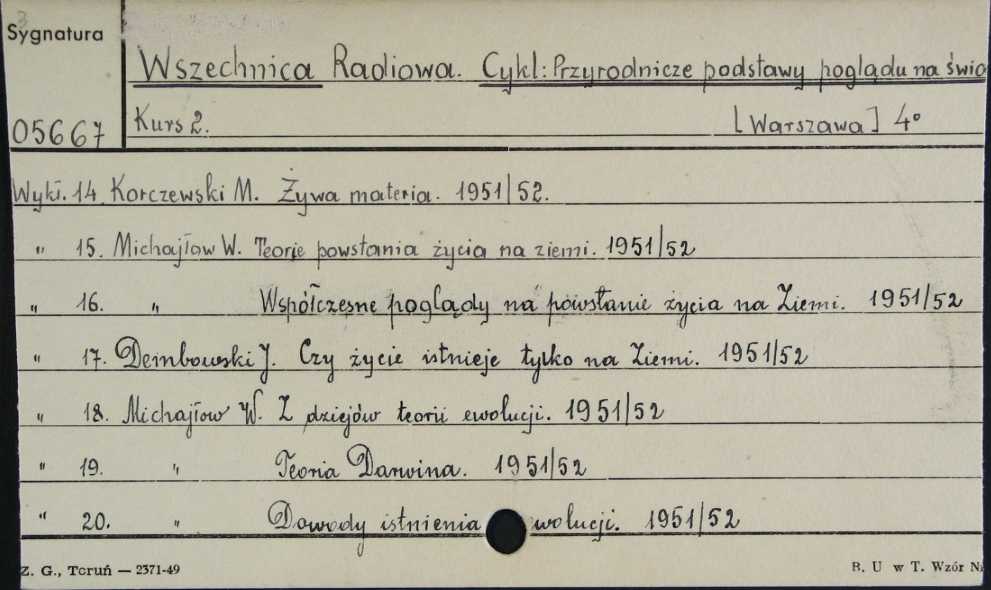 3
Sygnatura
Wszechnica Radiowa. Cykl: Przyrodnicze podstawy poglądu na świa
05667 Kurs 2. [Warszawa] 4°
Wykł. 14. Korczewski M. Żywa materia. 1951/52.
" 15. Michajłow W. Teorie powstania życia na ziemi. 1951/52
" 16. " Współczesne poglądy na powstanie życia na Ziemi. 1951/52
" 17. Dembowski J. Czy życie istnieje tylko na Ziemi. 1951/52
" 18. Michajłow W. Z dziejów teorii ewolucji. 1951/52
" 19. " Teoria Darwina. 1951/52
" 20. " Dowody istnienia wolucji. 1951/52
Z. G., Toruń — 2371-49 B. U w T. Wzór Nr